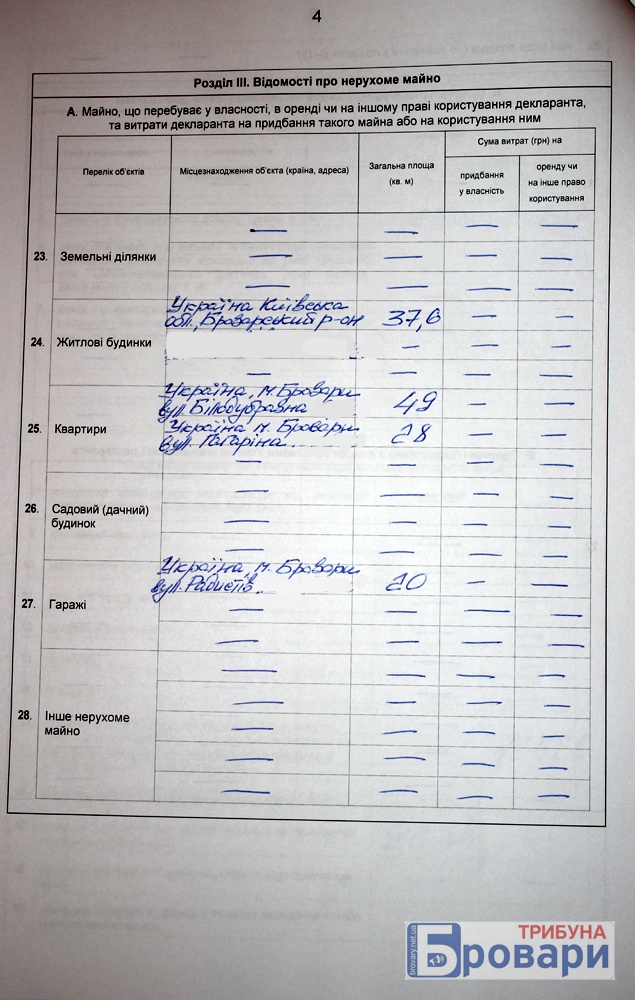 4
Розділ III. Відомості про нерухоме майно
А. Майно, що перебуває у власності, в оренді чи на іншому праві користування декларанта,
та витрати декларанта на придбання такого майна або на користування ним
Перелік об'єктів
Місцезнаходження об'єкта (країна, адреса)
Загальна площа
(кв. м)
Сума витрат (грн) на
придбання
у власність
оренду чи
на інше право
користування
23. Земельні ділянки
Україна Київська
обл., Броварський р-он 37,6
24. Житлові будинки
Україна, м. Бровари
вул. Білодубравна 49
25. Квартири
Україна м. Бровари
вул. Гагаріна 28
26. Садовий (дачний)
будинок
Україна, м. Бровари
вул. Радистів 20
27. Гаражі
28. Інше нерухоме
майно
brovary.net.ua
ТРИБУНА
Бровари